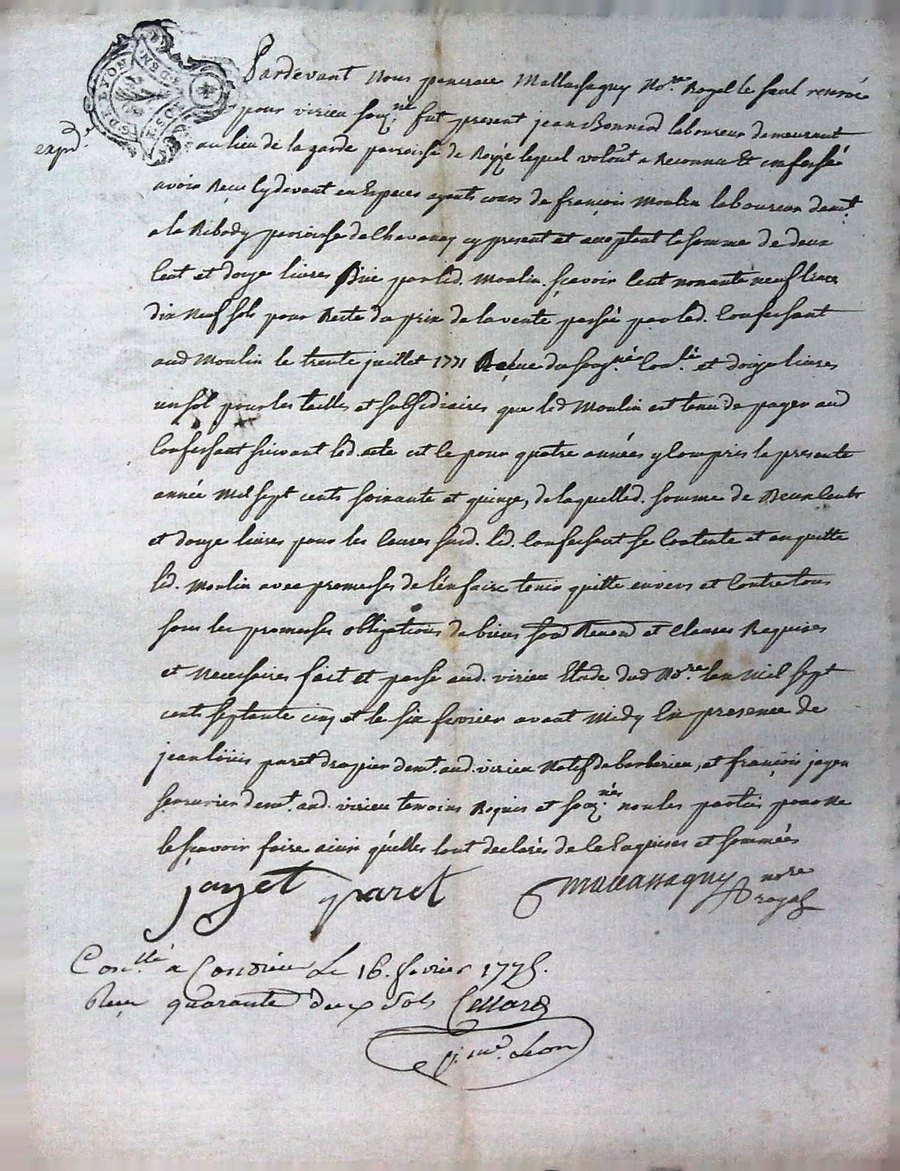 G. DE LYON
DEUX SOLS
expd.
Pardevant Nous pancrace Mallassagny No.re Royal le seul reservé
pour virieu souz.né fut present jean Bonnard laboureur demeurant
au lieu de la garde parroisse de Roizé lequel volont. a Reconnu Et confessé
avoir Recu cy devant en Especes ayants cours de françois Moulin laboureur demt.
a la Ribody paroisse de Chavanay cy present et acceptant la somme de deux
Cent et douze livres par led. Moulin sçavoir Cent nonante neuf livres
dix Neuf sols pour Reste du prix de la vente passée par led. Confessant
aud Moulin le trente juillet 1771 Recue du souz.né Con.lé et douze livres
un sol pour les tailles et subsidiaires que led Moulin est tenu de payer aud
Confessant suivant led. acte et ce pour quatre années y Compris la presente
année Mil sept cents soixante et quinze, de laquelled. somme de Deux Cents
et douze livres pour les Causes susd. led. Confessant se Contente et en quitte
led. Moulin avec promesses de l'en faire tenir quitte envers et Contre tous
sous les promesses obligations de biens Renon et Clauses Requises
et Necessaires fait et passé aud. virieu Etude dud No.re l'an Mil sept
cent septante cinq et le six fevrier avant Midy En presence de
jean louis paret drapier demt. aud. virieu Natif de , et françois jayet
serrurier demt. aud. virieu temoins Requis et souz.nés non les parties pour Ne
le sçavoir faire ainsi qu'elles l'ont declaré de ce Enquises et sommées
jayet paret Mallassagny no.re
royal
Con.llé a Condrieu Le 16. fevrier 1775.
Reçu quarante deux sols